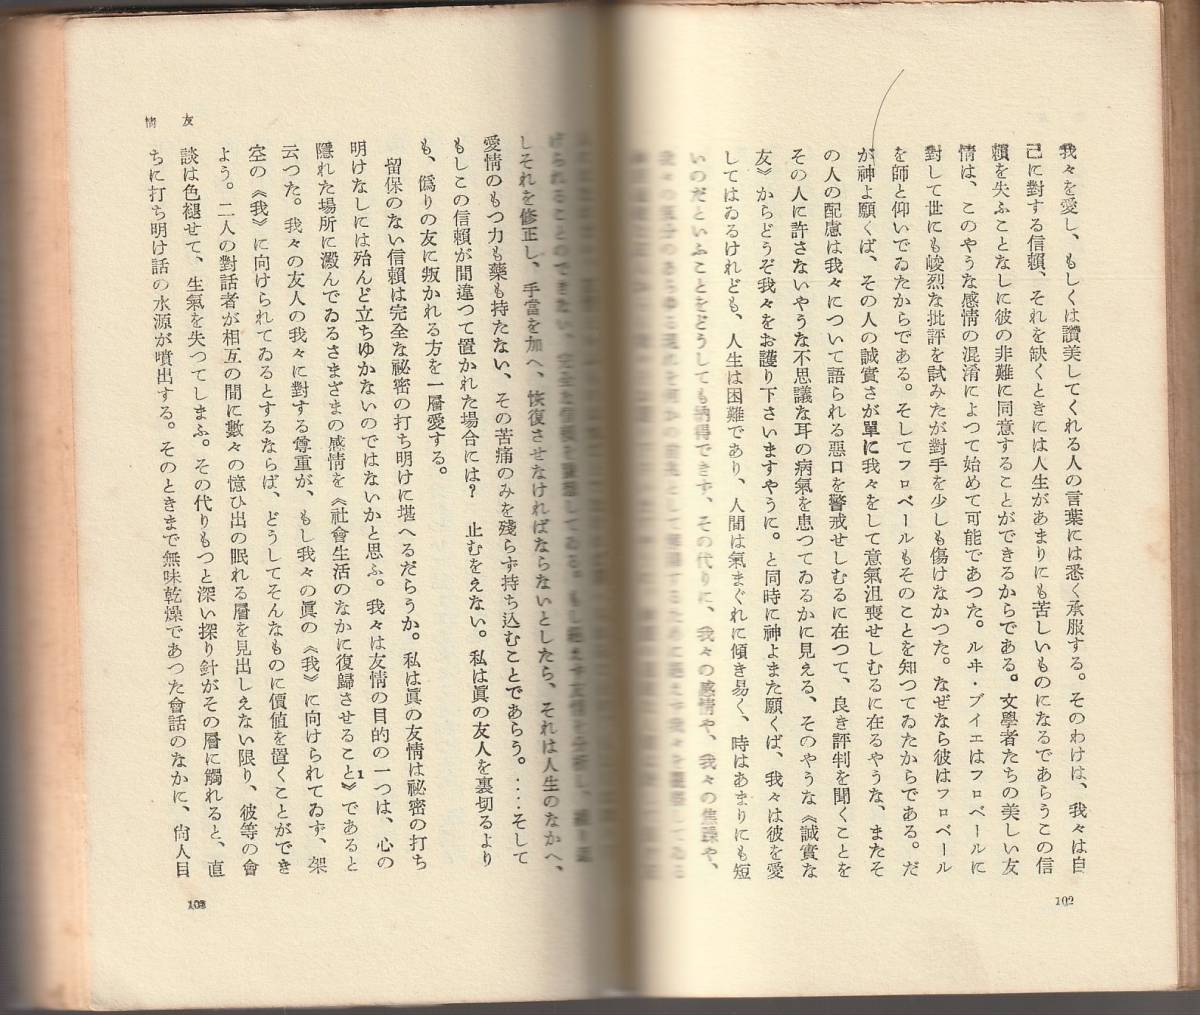 我々を愛し、もしくは讚美してくれる人の言葉には悉く承服する。そのわけは、我々は自
己に對する信賴、それを缺くときには人生があまりにも苦しいものになるであらうこの信
賴を失ふことなしに彼の非難に同意することができるからである。文學者たちの美しい友
情は、このやうな感情の混淆によつて始めて可能であつた。ルヰ・ブイエはフロベールに
對して世にも峻烈な批評を試みたが對手を少しも傷けなかつた。なぜなら彼はフロベール
を師と仰いでゐたからである。そしてフロベールもそのことを知つてゐたからである。だ
が神よ願くば、その人の誠實さが單に我々をして意氣沮喪せしむるに在るやうな、またそ
の人の配慮は我々について語られる惡口を警戒せしむるに在つて、良き評判を聞くことを
その人に許さないやうな不思議な耳の病氣を患つてゐるかに見える、そのやうな《誠實な
友》からどうぞ我々をお護り下さいますやうに。と同時に神よまた願くば、我々は彼を愛
してはゐるけれども、人生は困難であり、人間は氣まぐれに傾き易く、時はあまりにも短
いのだといふことをどうしても納得できず、その代りに、我々の感情や、我々の焦躁や、
102
げられることのできない、完全な信賴を
しそれを修正し、手當を加へ、恢復させなければならないとしたら、それは人生のなかへ、
愛情のもつ力も藥も持たない、その苦痛のみを殘らず持ち込むことであらう。‥‥そして
もしこの信賴が間違つて置かれた場合には？　止むをえない。私は眞の友人を裏切るより
も、僞りの友に叛かれる方を一層愛する。
留保のない信賴は完全な祕密の打ち明けに堪へるだらうか。私は眞の友情は祕密の打ち
明けなしには殆んど立ちゆかないのではないかと思ふ。我々は友情の目的の一つは、心の
隱れた場所に澱んでゐるさまざまの感情を《社會生活のなかに復歸させること1》であると
云つた。我々の友人の我々に對する尊重が、もし我々の眞の《我》に向けられてゐず、架
空の《我》に向けられてゐるとするならば、どうしてそんなものに價値を置くことができ
よう。二人の對話者が相互の間に數々の憶ひ出の眠れる層を見出しえない限り、彼等の會
談は色褪せて、生氣を失つてしまふ。その代りもつと深い探り針がその層に觸れると、直
ちに打ち明け話の水源が噴出する。そのときまで無味乾燥であつた會話のなかに、尙人目
友情
103